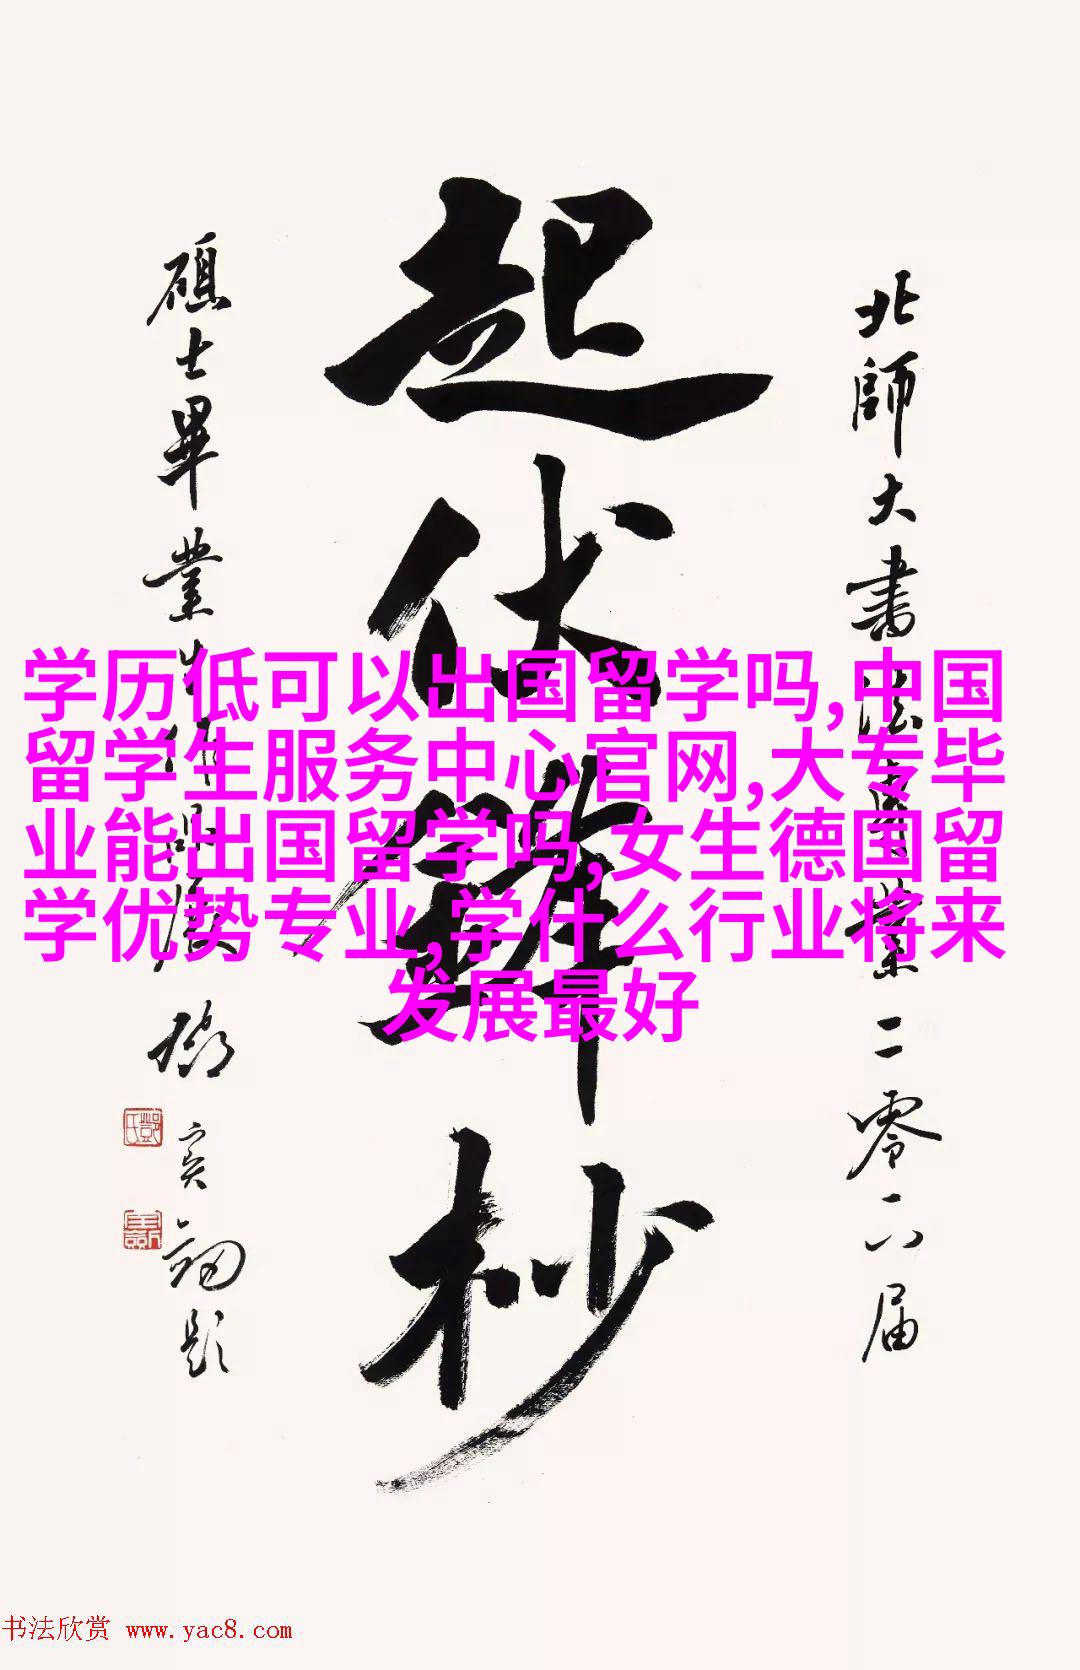 北師大書法專業二零一六届
起伏聲杪
碩士畢業生作品展
鄧寶剑題
学历低可以出国留学吗,中国
留学生服务中心官网,大专毕
业能出国留学吗,女生德国留
学优势专业,学什么行业将来
发展最好
书法欣赏 www.yac8.com